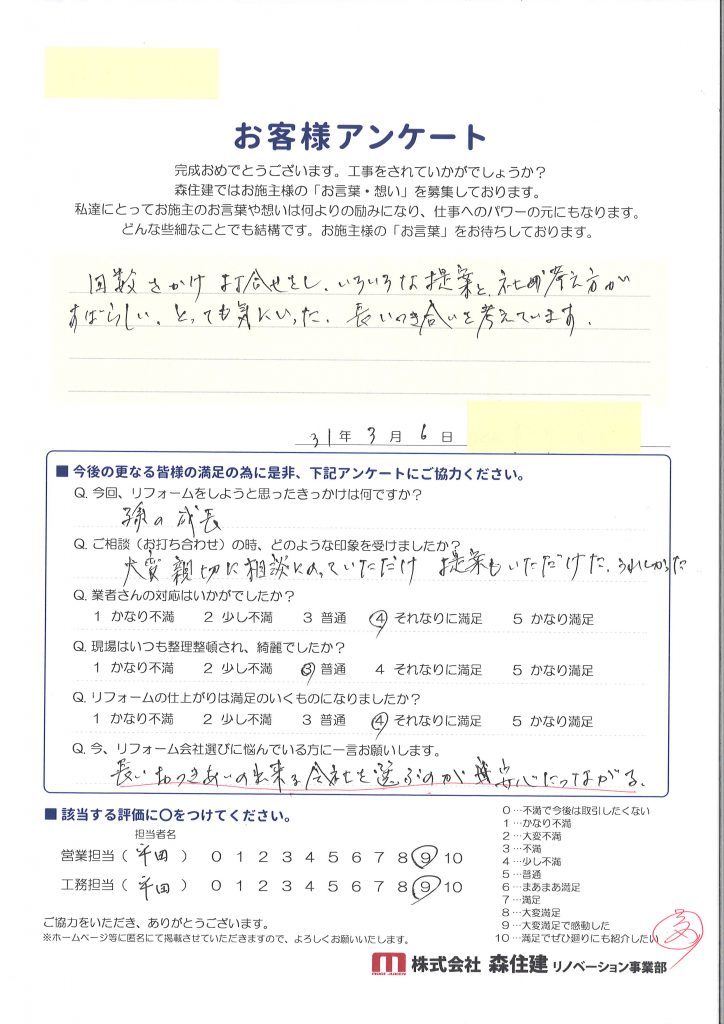 お客様アンケート
完成おめでとうございます。工事をされていかがでしょうか?
森住建ではお施主様の「お言葉・想い」を募集しております。
私達にとってお施主のお言葉や想いは何よりの励みになり、仕事へのパワーの元にもなります。
どんな些細なことでも結構です。お施主様の「お言葉」をお待ちしております。
回数をかけ 打合せをし、いろいろな提案と、考え方が
すばらしい。とっても気にいった。長いつき合いを考えています。
31年3月6日
■ 今後の更なる皆様の満足の為に是非、下記アンケートにご協力ください。
Q. 今回、リフォームをしようと思ったきっかけは何ですか?
孫の成長
Q. ご相談(お打ち合わせ)の時、どのような印象を受けましたか?
大変親切に相談にのっていただけ 提案もいただけた、うれしかった
Q. 業者さんの対応はいかがでしたか?
1 かなり不満 2 少し不満 3 普通 4 それなりに満足 5 かなり満足
Q. 現場はいつも整理整頓され、綺麗でしたか?
1 かなり不満 2 少し不満 3 普通 4 それなりに満足 5 かなり満足
Q. リフォームの仕上がりは満足のいくものになりましたか?
1 かなり不満 2 少し不満 3 普通 4 それなりに満足 5 かなり満足
Q. 今、リフォーム会社選びに悩んでいる方に一言お願いします。
長いおつきあいの出来る会社を選ぶのが 安心につながる。
■ 該当する評価に〇をつけてください。
担当者名
営業担当( 平田 ) 0 1 2 3 4 5 6 7 8 9 10
工務担当( 平田 ) 0 1 2 3 4 5 6 7 8 9 10
0…不満で今後は取引したくない
1…かなり不満
2…大変不満
3…不満
4…少し不満
5…普通
6…まあまあ満足
7…満足
8…大変満足
9…大変満足で感動した
10…満足でぜひ廻りにも紹介したい
ご協力をいただき、ありがとうございます。
※ホームページ等に匿名にて掲載させていただきますので、よろしくお願いいたします。
株式会社 森住建 リノベーション事業部